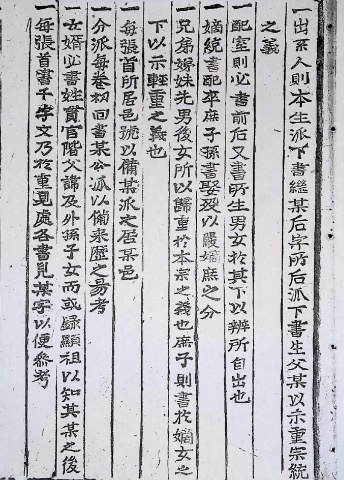 一出系人則本生派下書繼某后字所后派下書生父某以示重宗統
之義
一配室則必書前后又書所生男女於其下以辨所自出也
一嫡統書配卒庶子孫書娶歿以嚴嫡庶之分
一兄弟姊妹先男後女所以歸重於本宗之義也庶子則書於嫡女之
下以示輕重之義也
一每張首所居邑號以備某派之居某邑
一分派每卷初回書某公派以備來歷之易考
一女婿必書姓貫官階父諱及外孫子女而或錄顯祖以知其某之後
一每張首書千字文乃於重見處各書見某字以便參考